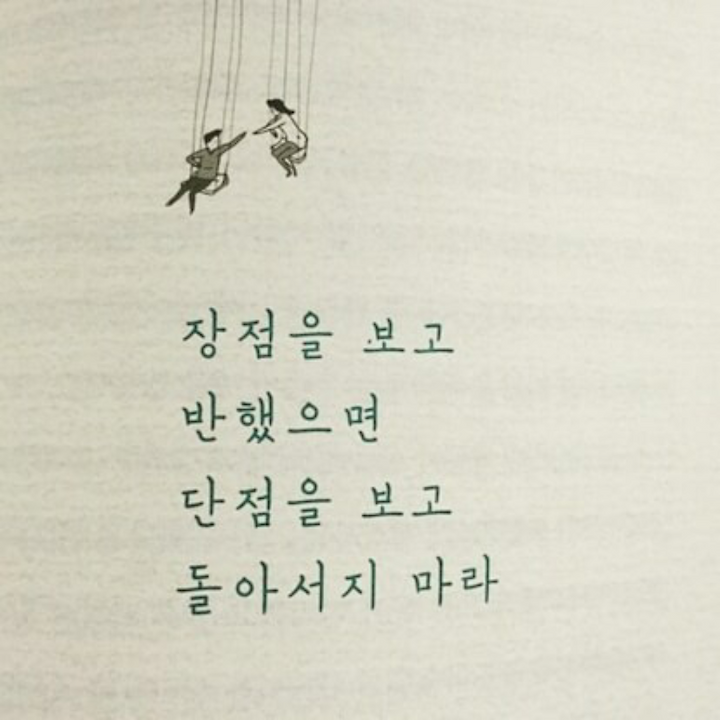 장점을 보고
반했으면
단점을 보고
돌아서지 마라